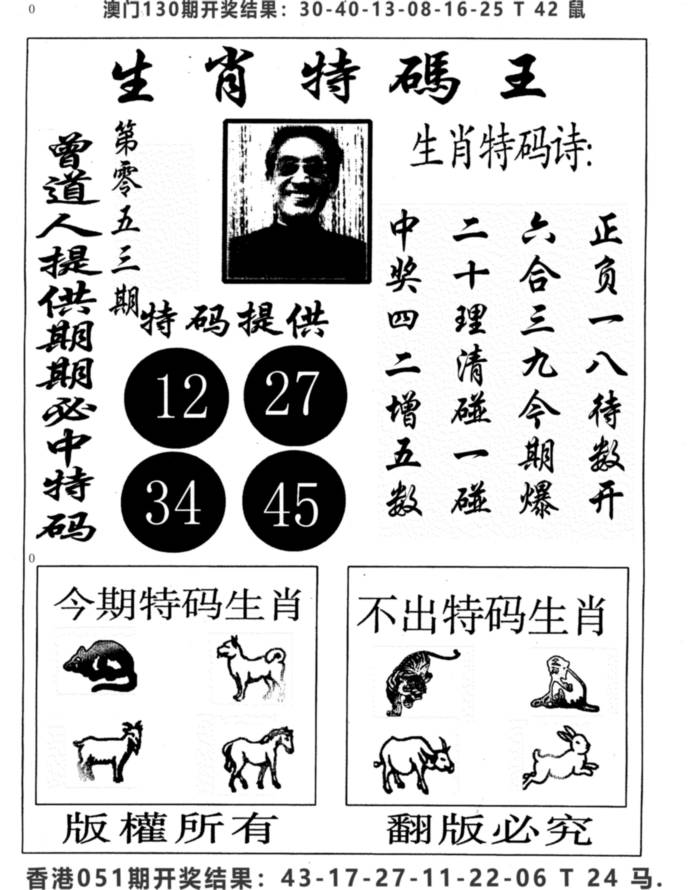 0
澳门130期开奖结果：30-40-13-08-16-25 T 42 鼠
生肖特碼王
曾道人提供期期必中特码
第零五三期
生肖特码诗:
正负一八待数开
六合三九今期爆
二十理清碰一碰
中奖四二增五数
特码提供
12 27
34 45
0
今期特码生肖
不出特码生肖
版權所有
翻版必究
香港051期开奖结果：43-17-27-11-22-06 T 24 马.